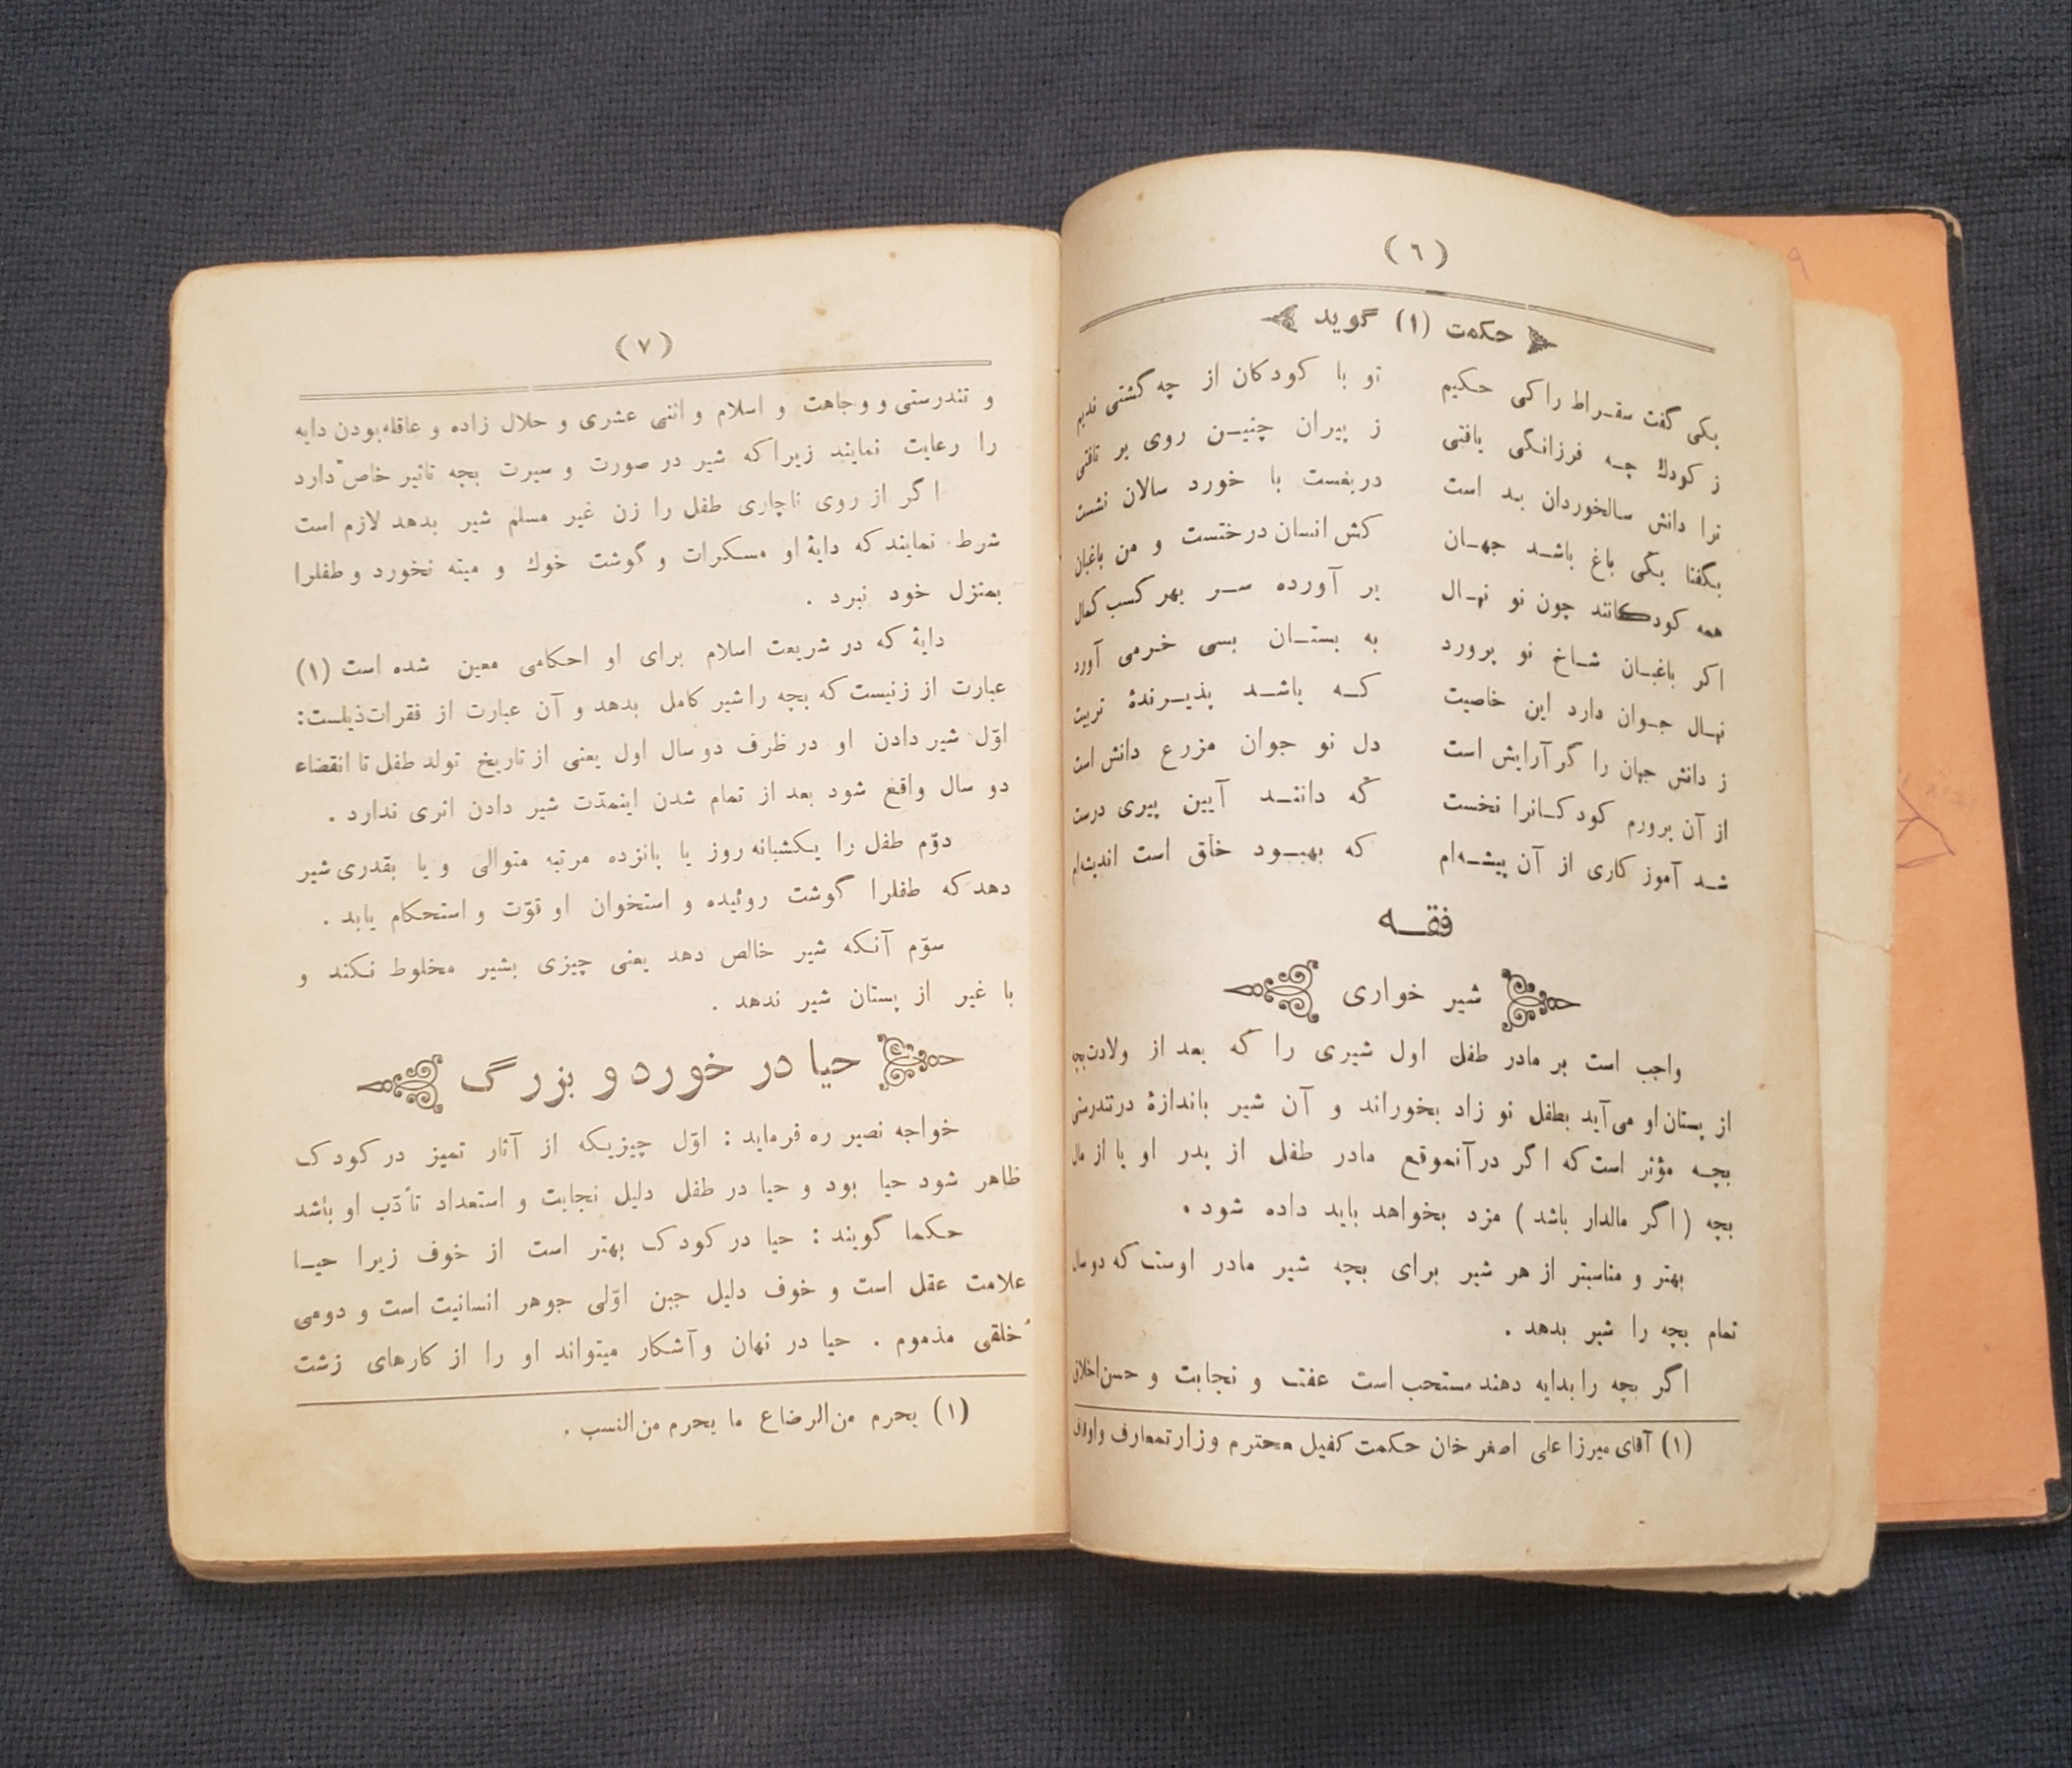 (٦)
حکمت (۱) گوید
یکی گفت سقراط را کی حکیم تو با کودکان از چه گشتی ندیم
ز کودك چه فرزانگی یافتی ز پیران چنین روی بر تافتی
ترا دانش سالخوردان بد است دریغست با خورد سالان نشست
بگفتا یکی باغ باشد جهان کش انسان درختست و من باغبان
همه کودکانند چون نو نهال بر آورده سر بهر کسب کمال
اکر باغبان شاخ نو پرورد به بستان بسی خرمی آورد
نهال جوان دارد این خاصیت که باشد پذیرندهٔ تربیت
ز دانش جهان را گر آرایش است دل نو جوان مزرع دانش است
از آن پرورم کودکانرا نخست که دانند آیین پیری درست
شد آموز کاری از آن پیشه‌ام که بهبود خلق است اندیشه‌ام
فقه
شیر خواری
واجب است بر مادر طفل اول شیری را که بعد از ولادت بچه
از پستان او می آید بطفل نو زاد بخوراند و آن شیر باندازهٔ در تندرستی
بچه مؤثر است که اگر در آنموقع مادر طفل از پدر او یا از مال
بچه (اگر مالدار باشد) مزد بخواهد باید داده شود .
بهتر و مناسبتر از هر شیر برای بچه شیر مادر اوست که دو سال
تمام بچه را شیر بدهد .
اگر بچه را بدایه دهند مستحب است عفت و نجابت و حسن اخلاق
(۱) آقای میرزا علی اصغر خان حکمت کفیل محترم وزارتمعارف و اوقاف
(۷)
و تندرستی و وجاهت و اسلام و اثنی عشری و حلال زاده و عاقله بودن دایه
را رعایت نمایند زیرا که شیر در صورت و سیرت بچه تاثیر خاصّ دارد
اگر از روی ناچاری طفل را زن غیر مسلم شیر بدهد لازم است
شرط نمایند که دایهٔ او مسکرات و گوشت خوك و میته نخورد و طفلرا
بمنزل خود نبرد .
دایهٔ که در شریعت اسلام برای او احکامی معین شده است (۱)
عبارت از زنیست که بچه را شیر کامل بدهد و آن عبارت از فقرات ذیلست:
اوّل شیر دادن او در ظرف دو سال اول یعنی از تاریخ تولد طفل تا انقضاء
دو سال واقع شود بعد از تمام شدن اینمدّت شیر دادن اثری ندارد .
دوّم طفل را یکشبانه روز یا پانزده مرتبه متوالی و یا بقدری شیر
دهد که طفلرا گوشت روئیده و استخوان او قوّت و استحکام یابد .
سوّم آنکه شیر خالص دهد یعنی چیزی بشیر مخلوط نکند و
با غیر از پستان شیر ندهد .
حیا در خورد و بزرگ
خواجه نصیر ره فرماید : اوّل چیزیکه از آثار تمیز در کودک
ظاهر شود حیا بود و حیا در طفل دلیل نجابت و استعداد تأدّب او باشد
حکما گویند : حیا در کودک بهتر است از خوف زیرا حیا
علامت عقل است و خوف دلیل جبن اوّلی جوهر انسانیت است و دومی
خُلقی مذموم . حیا در نهان و آشکار میتواند او را از کارهای زشت
(۱) یحرم من الرضاع ما یحرم من النسب .